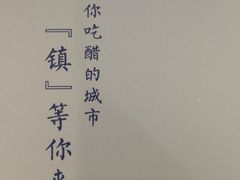 你吃醋的城市
『镇』等你